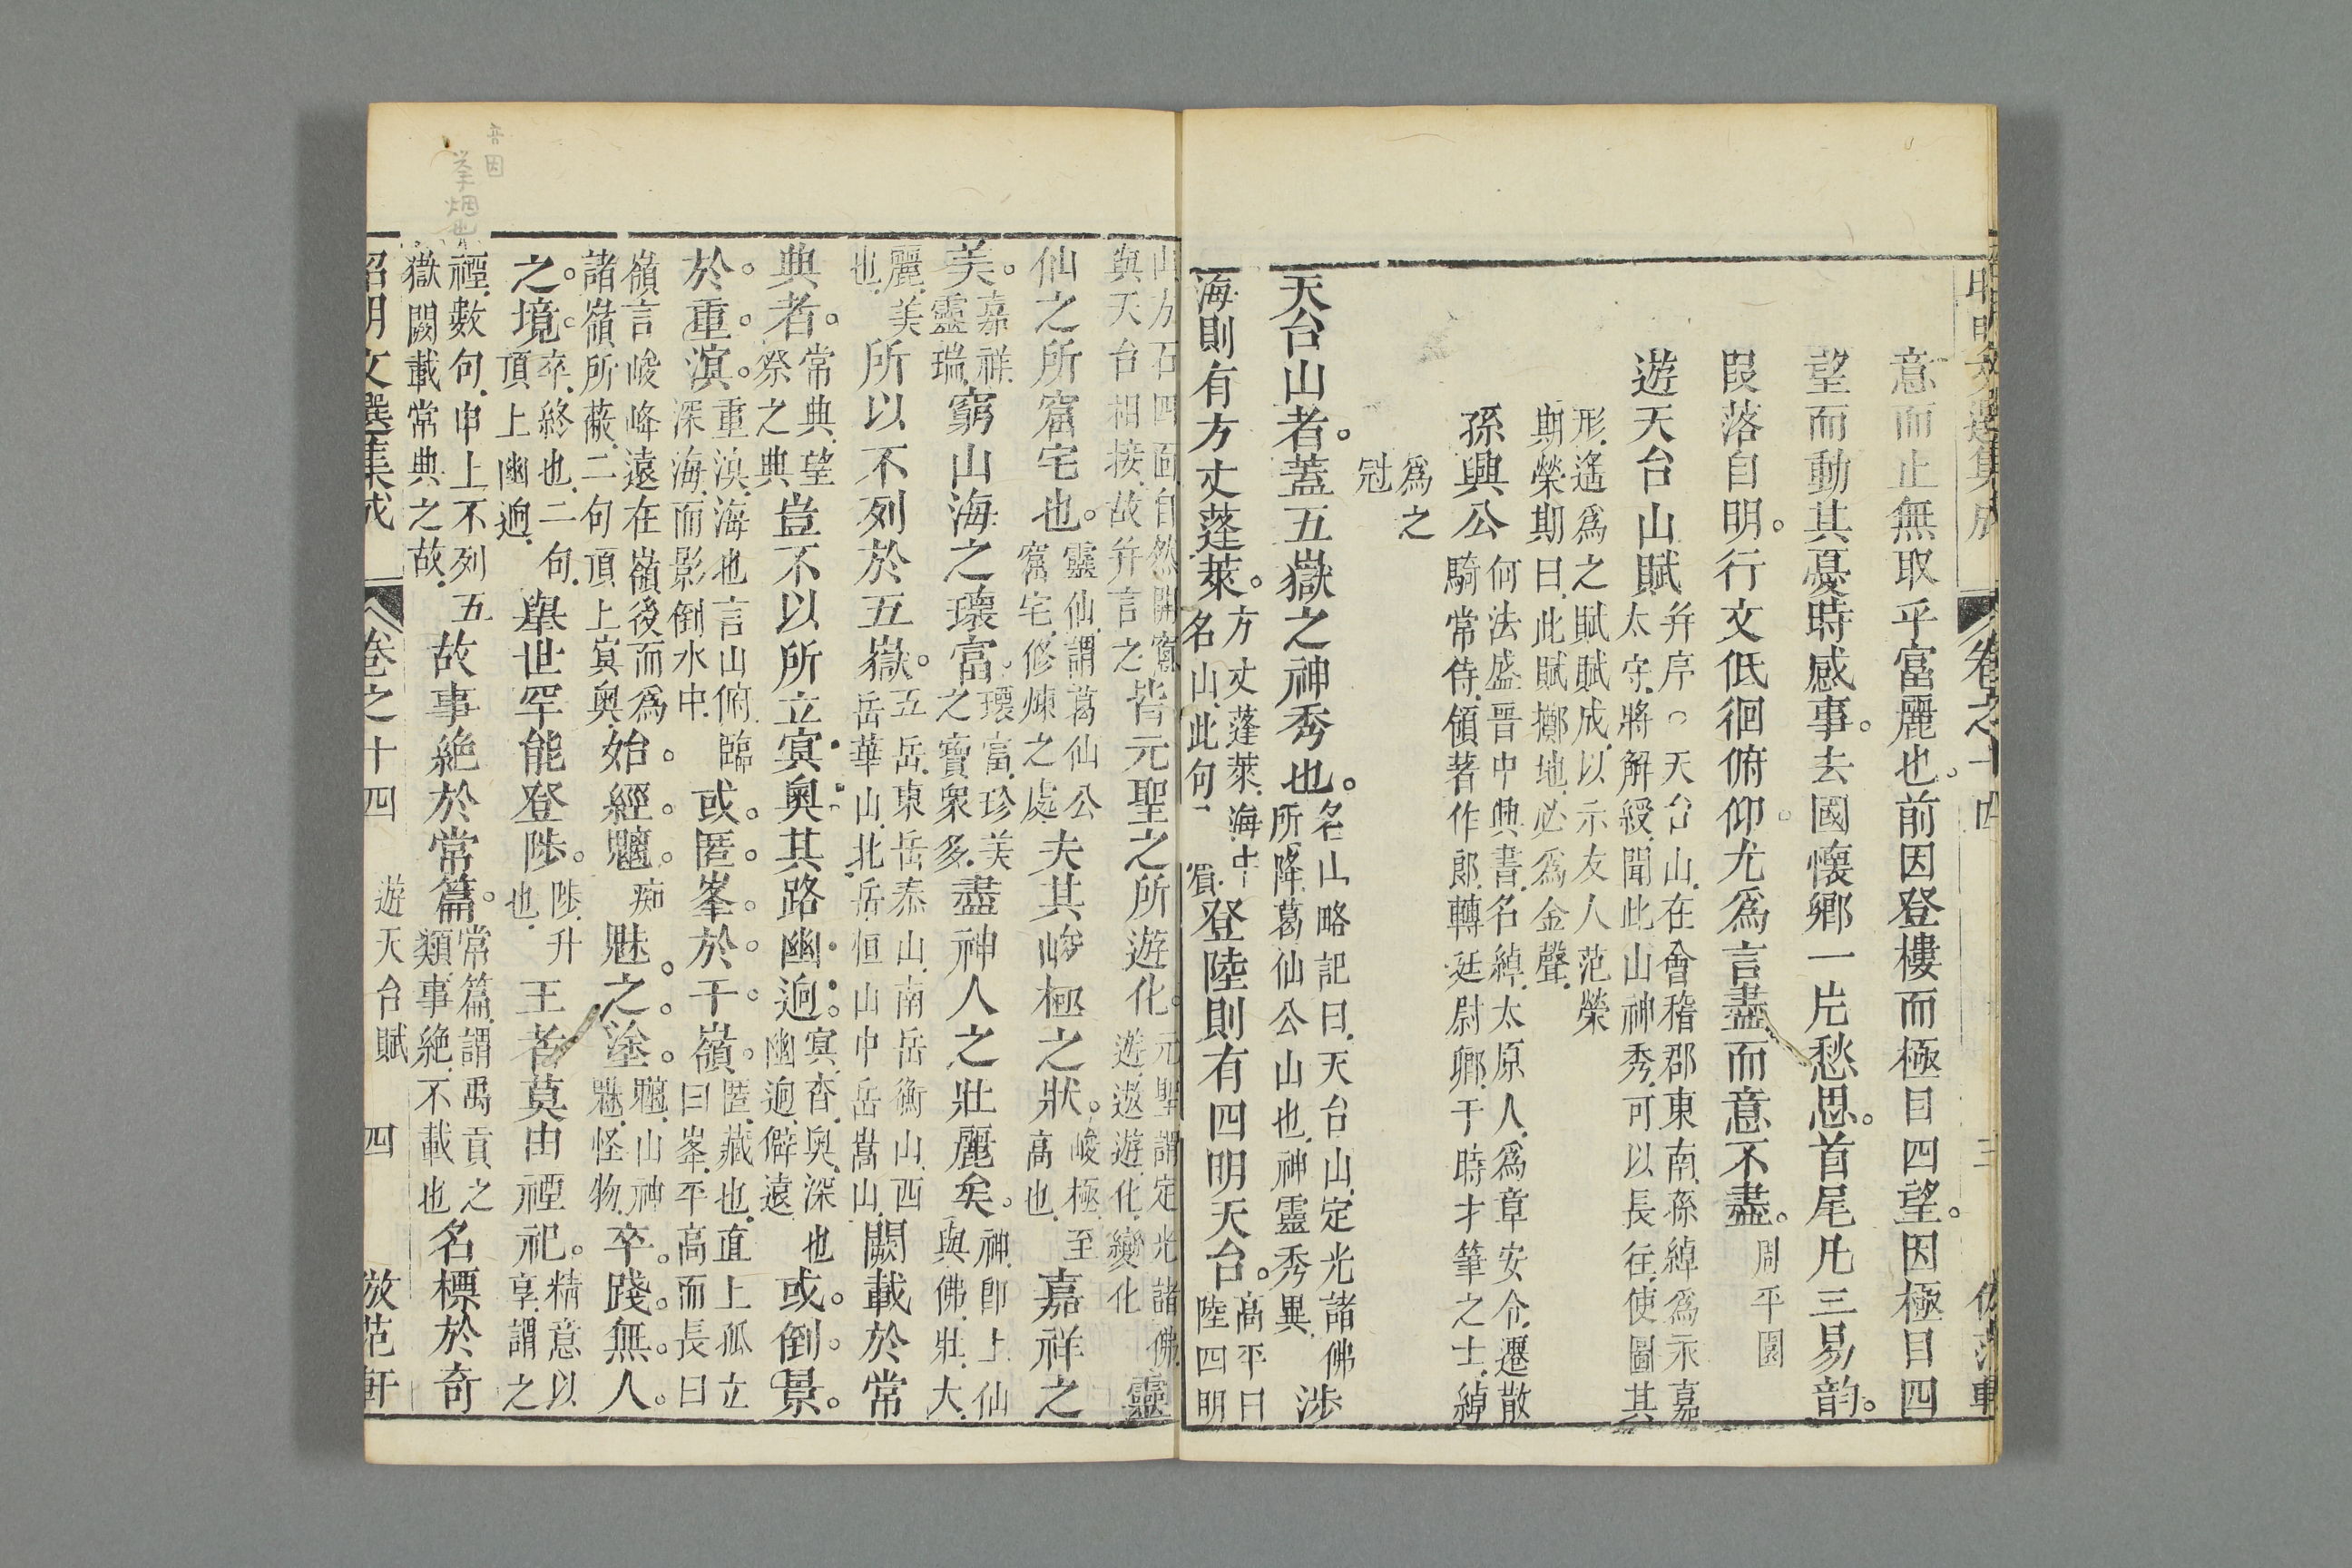 昭明文選集成 卷之十四 三
意而止無取乎富麗也。前因登樓而極目四望。因極目四
望而動其憂時感事。去國懷鄉一片愁思。首尾凡三易韵。
段落自明。行文低徊俯仰。尤爲言盡而意不盡。周平園
遊天台山賦
并序○天台山,在會稽郡東南,孫綽爲永嘉
太守,將解綬,聞此山神秀,可以長往,使圖其
形,遙爲之賦,賦成,以示友人范榮
期,榮期曰,此賦擲地,必爲金聲,
孫興公
何法盛晉中興書,名綽,太原人,爲章安令,遷散
騎常侍,領著作郎,轉廷尉卿,于時才筆之士,綽
爲之
冠
天台山者。蓋五嶽之神秀也。
名山略記曰,天台山,定光諸佛
所降,葛仙公山也,神靈秀異,
涉
海則有方丈蓬萊。
方丈蓬萊,海中
名山,此句賓,
登陸則有四明天台。
高平曰
陸四明
山方石四面自然開窻
與天台相接,故并言之
皆元聖之所遊化。
元聖謂定光諸佛,
遊,遨遊,化,變化
靈
仙之所窟宅也。
靈仙,謂葛仙公
窟宅,修煉之處
夫其峻極之狀。
峻極,至
高也,
嘉祥之
美。
嘉祥,
靈瑞,
窮山海之瓌富。
瓌富,珍美
之寶衆多,
盡神人之壯麗矣。
神,卽上仙
與佛,壯,大,
麗,美
也,
所以不列於五嶽。
五岳,東岳泰山,南岳衡山,西
岳華山,北岳恒山,中岳嵩山,
闕載於常
典者。
常典,望
祭之典
豈不以所立冥奧其路幽迥。
冥,杳,奧,深也
幽迥,僻遠
或。倒。景。
於。重。溟。
重溟,海也,言山俯臨
深海,而影倒水中,
或。匿。峯。於。千。嶺。
匿,藏也,直上孤立
曰峯,平高而長曰
嶺,言峻峰遠在嶺後而爲
諸嶺所蔽,二句頂上冥奧,
始。經。魑。
痴
魅。之。塗。
魑,山神
魅,怪物,
卒。踐。無。人。
之。境。
卒,終也,二句,
頂上幽迥,
舉世罕能登陟。
陟,升
也,
王者莫由禋祀。
精意以
享,謂之
禋,數句,申上不列五
嶽闕載常典之故,
故事絶於常篇。
常篇,謂禹貢之
類,事絶,不載也,
名標於奇
昭明文選集成 卷之十四 遊天台賦 四 倣范軒
音因